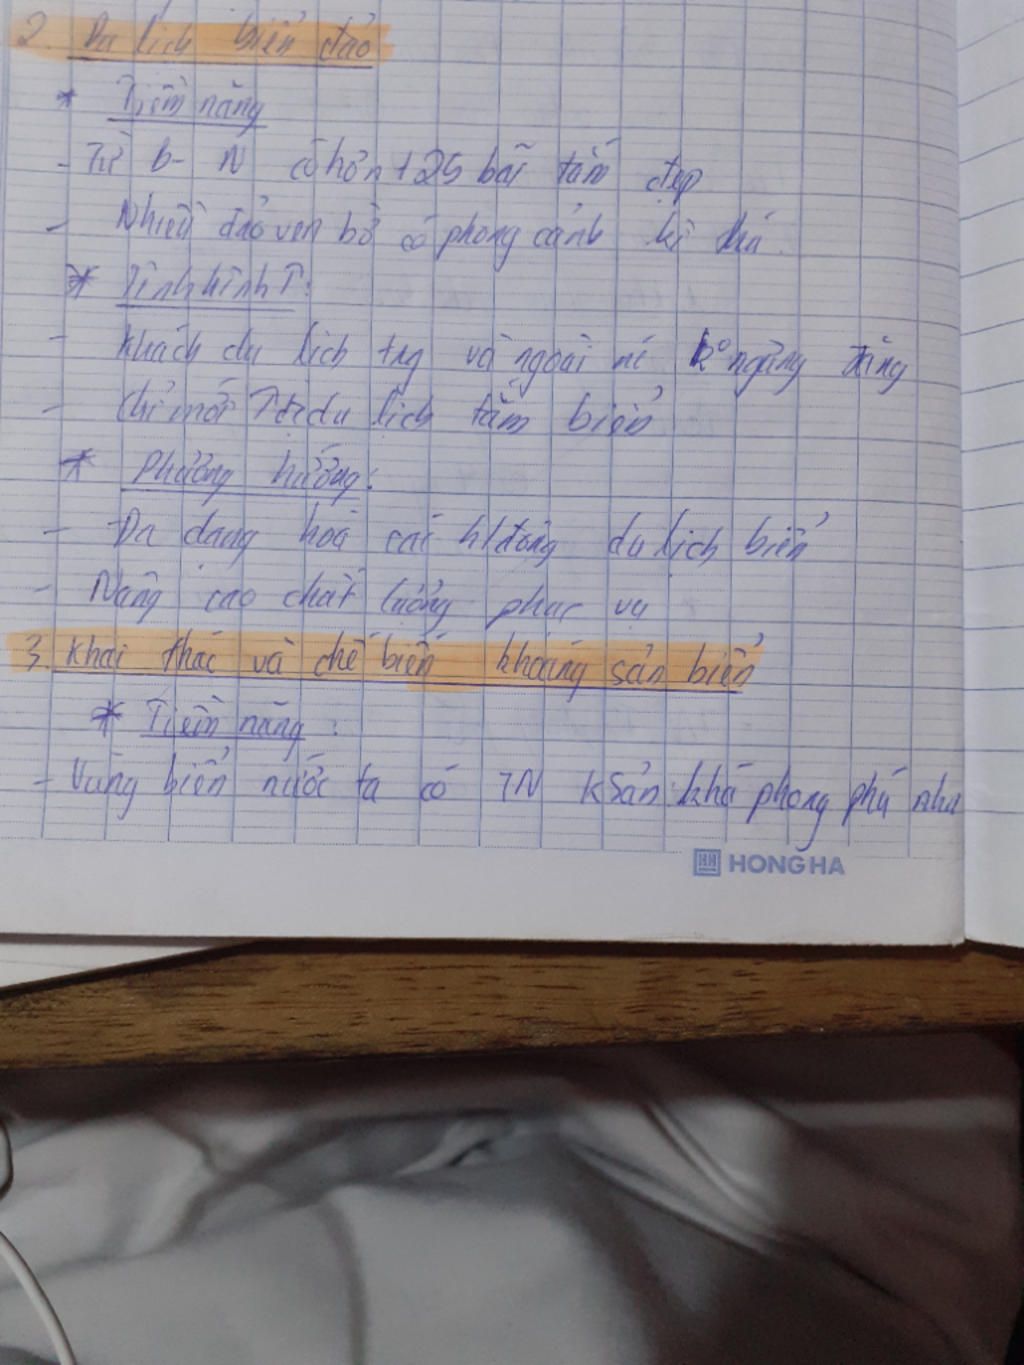 2. Du lịch biển đảo
* Tiềm năng
- Từ B - N có hơn 125 bãi tắm đẹp
- Nhiều đảo ven bờ có phong cảnh kì thú.
* Tình hình T:
- Khách du lịch trg và ngoài nc ko ngừng tăng
- Chỉ mới du lịch tắm biển
* Phương hướng:
- Đa dạng hoá các h/động du lịch biển
- Nâng cao chất lượng phục vụ
3. Khai thác và chế biến khoáng sản biển
* Tiềm năng:
- Vùng biển nước ta có TN Ksản khá phong phú như
HONG HA